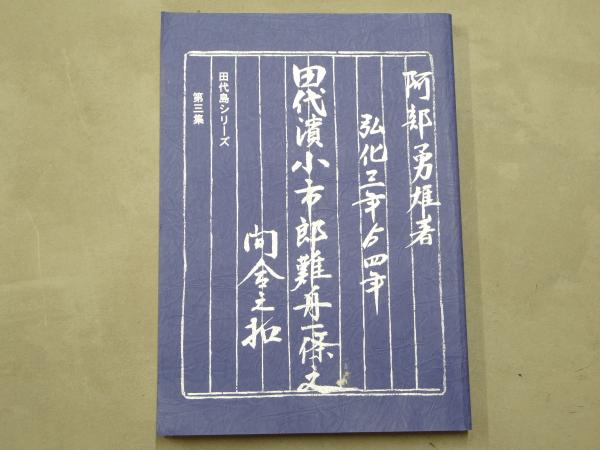 阿部勇雄著
弘化三年ゟ四年
田代濱小市郎難舟一條文
聞合之扣
田代島シリーズ
第三集